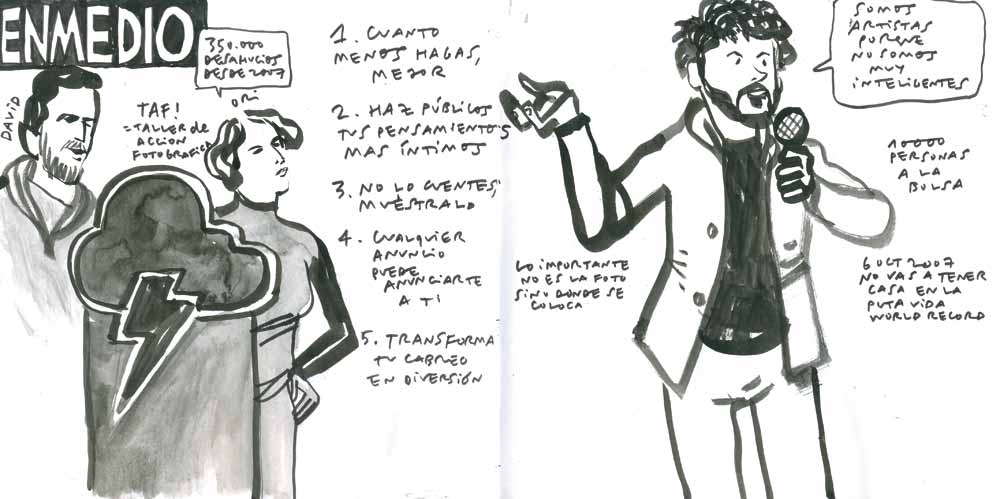 ENMEDIO
350.000
DESAHUCIOS
DESDE 2007
DAVID
TAF!
=TALLER de
ACCION
FOTOGRAFICA
ORI
1. CUANTO
MENOS HAGAS,
MEJOR
2. HAZ PÚBLICOS
TUS PENSAMIENTOS
MAS ÍNTIMOS
3. NO LO CUENTES,
MUÉSTRALO
4. CUALQUIER
ANUNCIO
PUEDE
ANUNCIARTE
A TI
5. TRANSFORMA
TU CABREO
EN DIVERSIÓN
SOMOS
ARTISTAS
PORQUE
NO SOMOS
MUY
INTELIGENTES
10000
PERSONAS
A LA
BOLSA
LO IMPORTANTE
NO ES LA FOTO
SINO DONDE SE
COLOCA
6 OCT 2007
NO VAS A TENER
CASA EN LA
PUTA VIDA
WORLD RECORD